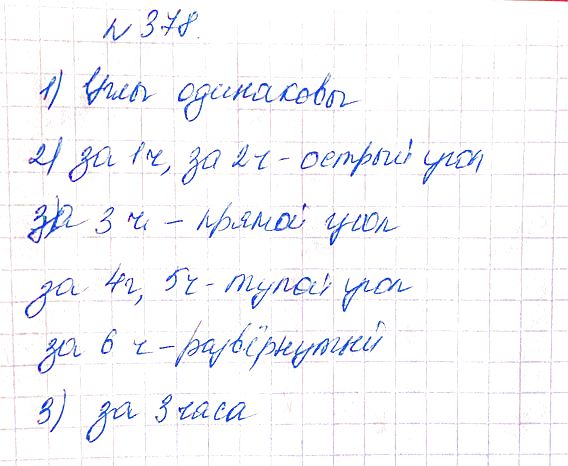 № 378.
1) Углы одинаковы
2) за 1ч, за 2ч - острый угол
за 3 ч - прямой угол
за 4ч, 5ч - тупой угол
за 6 ч - развёрнутый
3) за 3 часа